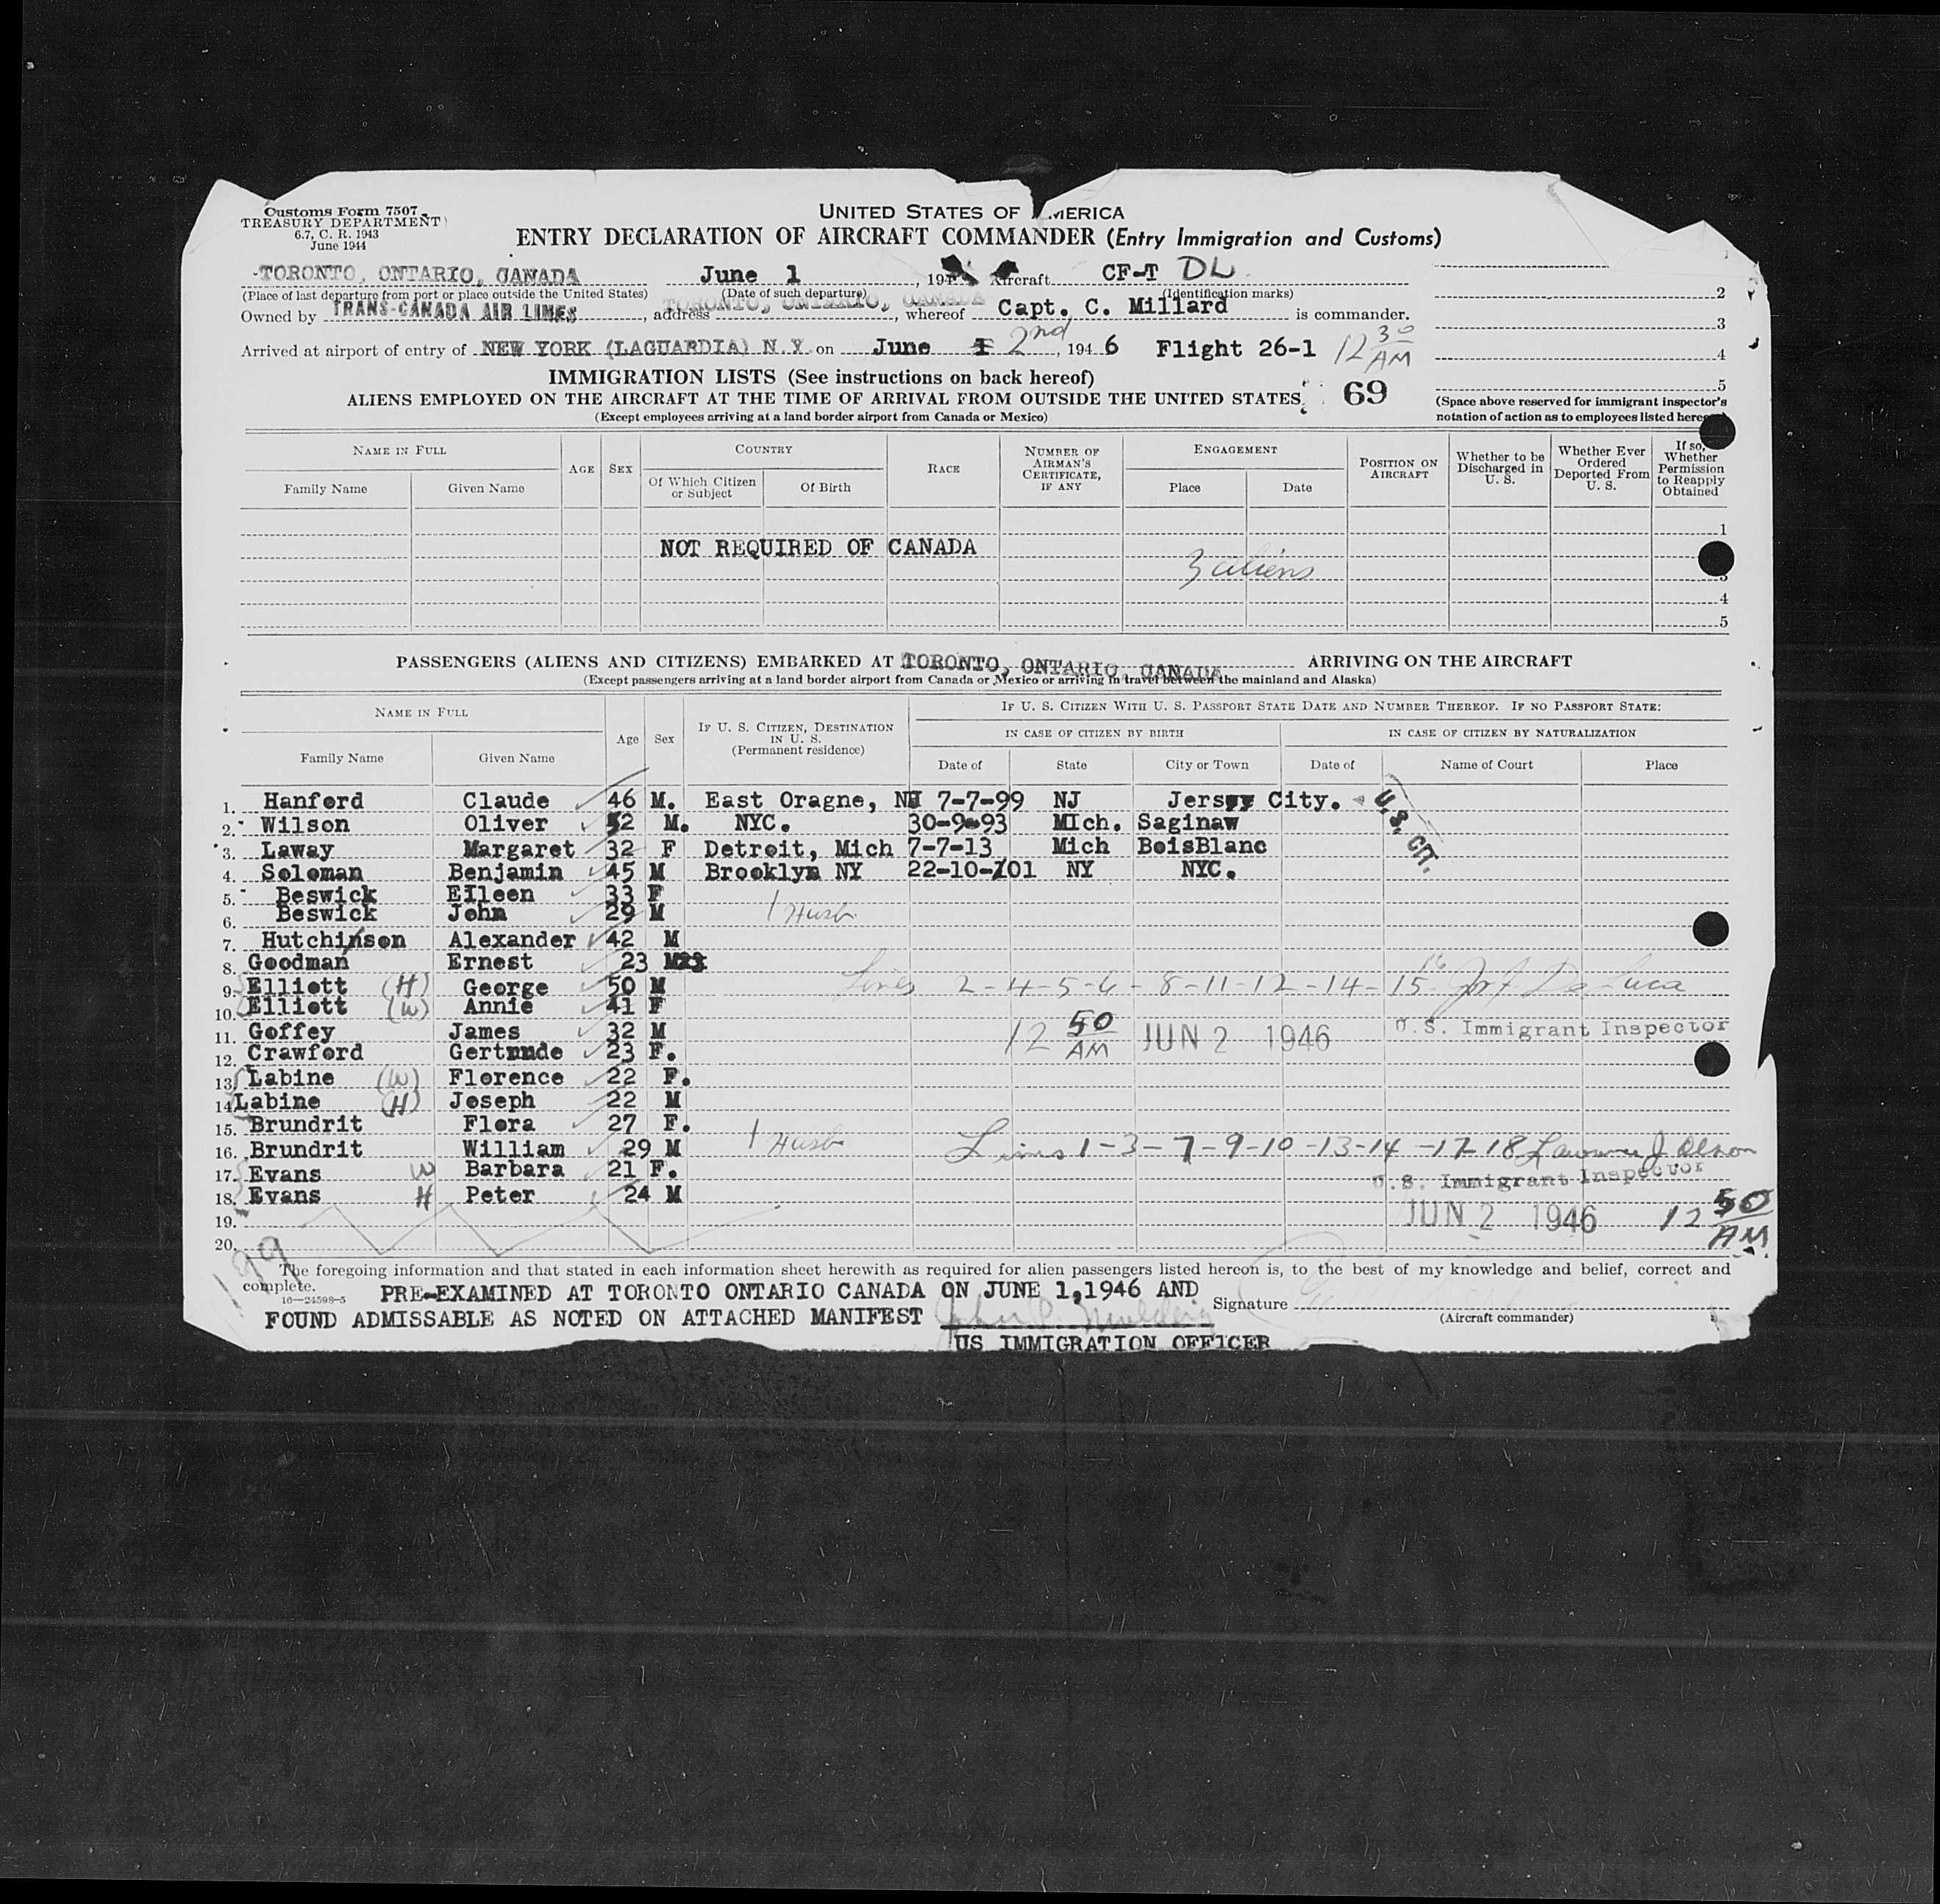 Customs Form 7507
TREASURY DEPARTMENT
6.7, C. R. 1943
June 1944
UNITED STATES OF AMERICA
ENTRY DECLARATION OF AIRCRAFT COMMANDER (Entry Immigration and Customs)
TORONTO, ONTARIO, CANADA June 1, 194 Aircraft CF-T DL
(Place of last departure from port or place outside the United States) (Date of such departure) (Identification marks)
Owned by TRANS-CANADA AIR LINES, address TORONTO, ONTARIO, CANADA, whereof Capt. C. Millard is commander.
Arrived at airport of entry of NEW YORK (LAGUARDIA) N.Y. on June 1 2nd, 1946 Flight 26-1 12 30 AM
2
3
4
5
IMMIGRATION LISTS (See instructions on back hereof)
ALIENS EMPLOYED ON THE AIRCRAFT AT THE TIME OF ARRIVAL FROM OUTSIDE THE UNITED STATES 69
(Except employees arriving at a land border airport from Canada or Mexico)
(Space above reserved for immigrant inspector's
notation of action as to employees listed hereon)
NAME IN FULL AGE SEX COUNTRY RACE NUMBER OF AIRMAN'S CERTIFICATE, IF ANY ENGAGEMENT POSITION ON AIRCRAFT Whether to be Discharged in U. S. Whether Ever Ordered Deported From U. S. If so, Whether Permission to Reapply Obtained
Family Name Given Name Of Which Citizen or Subject Of Birth Place Date
1
NOT REQUIRED OF CANADA
3 aliens
3
4
5
PASSENGERS (ALIENS AND CITIZENS) EMBARKED AT TORONTO, ONTARIO, CANADA ARRIVING ON THE AIRCRAFT
(Except passengers arriving at a land border airport from Canada or Mexico or arriving in travel between the mainland and Alaska)
NAME IN FULL Age Sex IF U. S. CITIZEN, DESTINATION IN U. S. (Permanent residence) IF U. S. CITIZEN WITH U. S. PASSPORT STATE DATE AND NUMBER THEREOF. IF NO PASSPORT STATE:
IN CASE OF CITIZEN BY BIRTH IN CASE OF CITIZEN BY NATURALIZATION
Family Name Given Name Date of State City or Town Date of Name of Court Place
1. Hanford Claude 46 M. East Oragne, NJ 7-7-99 NJ Jersey City.
U.S. CIT.
2. Wilson Oliver 52 M. NYC. 30-9-93 MIch. Saginaw
3. Laway Margaret 32 F Detroit, Mich 7-7-13 Mich BoisBlanc
4. Soloman Benjamin 45 M Brooklyn NY 22-10-101 NY NYC.
5. Beswick EIleen 33 F
6. Beswick John 29 M 1 Husb
7. Hutchinson Alexander 42 M
8. Goodman Ernest 23 M23
9. Elliott (H) George 50 M Lines 2-4-5-6-8-11-12-14-15 16 Jos F De Luca
10. Elliott (W) Annie 41 F
11. Goffey James 32 M 12 50 AM JUN 2 1946 U.S. Immigrant Inspector
12. Crawford Gertrude 23 F.
13. Labine (W) Florence 22 F.
14. Labine (H) Joseph 22 M
15. Brundrit Flora 27 F.
16. Brundrit William 29 M 1 Husb Lines 1-3-7-9-10-13-14-17-18 Lawrence J Olson
17. Evans W Barbara 21 F. U.S. Immigrant Inspector
18. Evans H Peter 24 M
19. JUN 2 1946 12 50 AM
20.
199
The foregoing information and that stated in each information sheet herewith as required for alien passengers listed hereon is, to the best of my knowledge and belief, correct and
complete.
16—24598-5
PRE-EXAMINED AT TORONTO ONTARIO CANADA ON JUNE 1,1946 AND
Signature
FOUND ADMISSABLE AS NOTED ON ATTACHED MANIFEST
(Aircraft commander)
US IMMIGRATION OFFICER